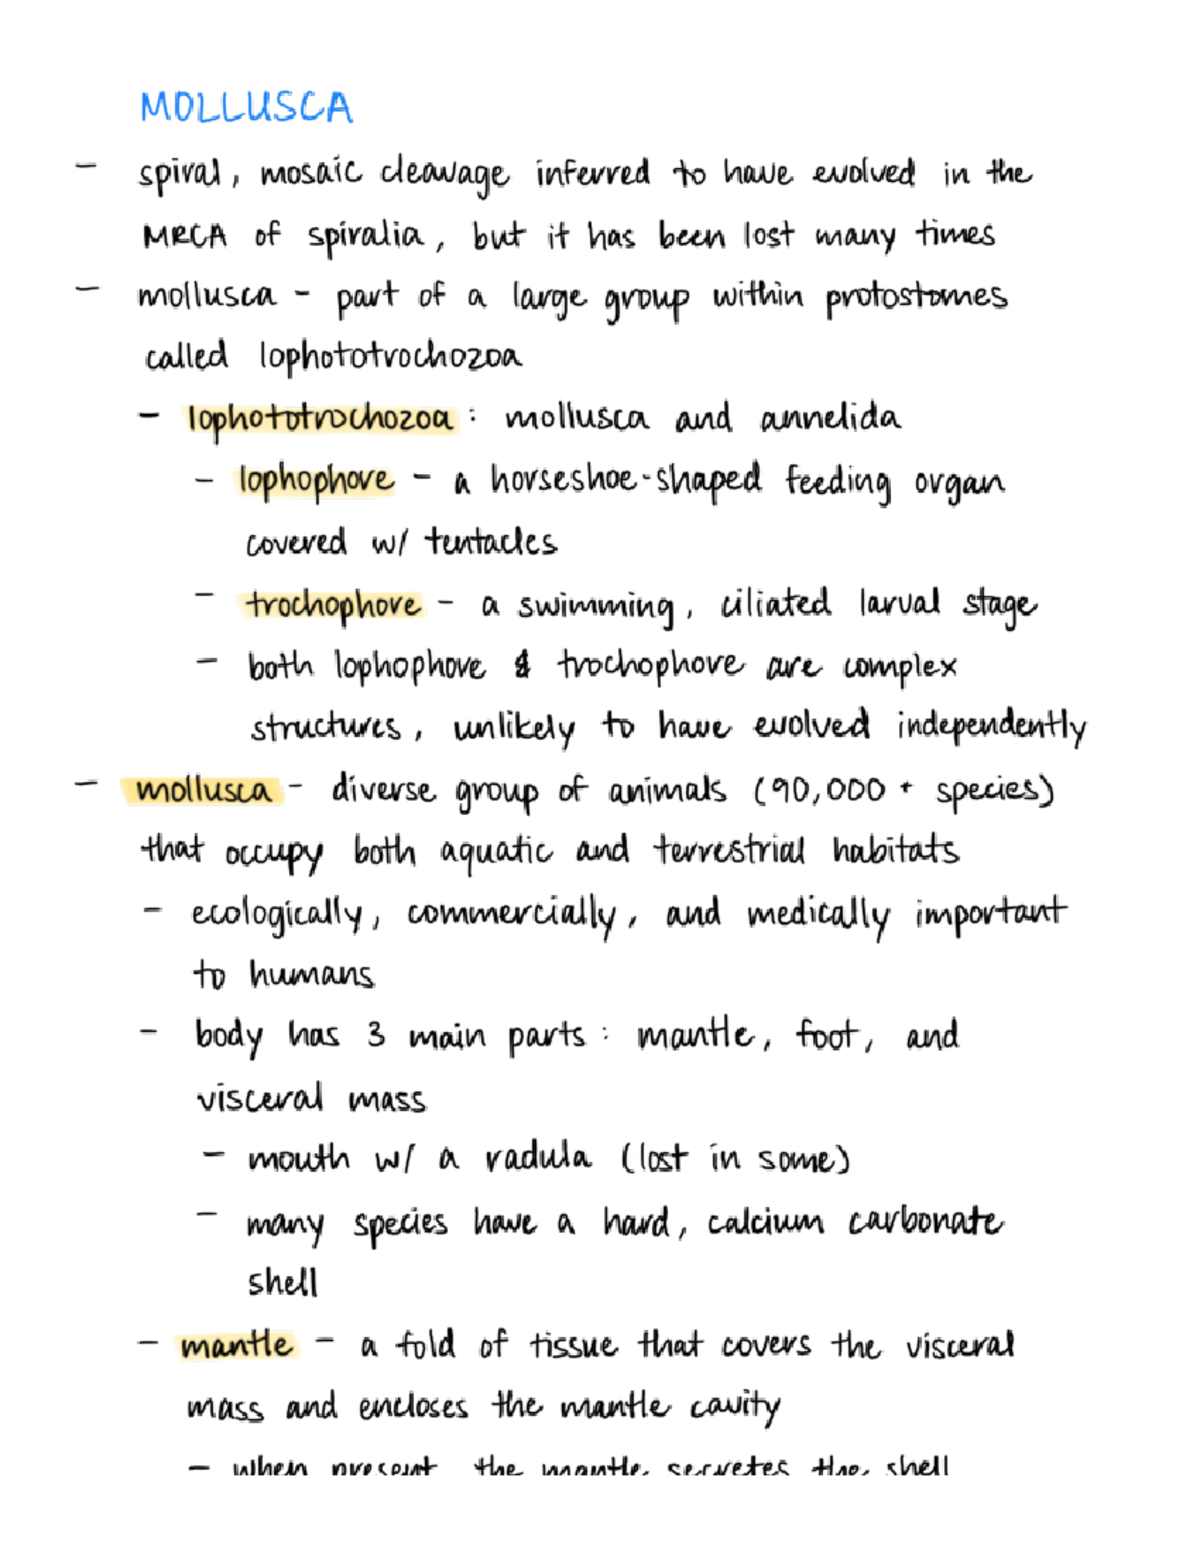 MOLLUSCA
- spiral, mosaic cleavage inferred to have evolved in the
MRCA of spiralia, but it has been lost many times
- mollusca - part of a large group within protostomes
called lophototrochozoa
- lophototrochozoa: mollusca and annelida
- lophophore - a horseshoe-shaped feeding organ
covered w/ tentacles
- trochophore - a swimming, ciliated larval stage
- both lophophore & trochophore are complex
structures, unlikely to have evolved independently
- mollusca - diverse group of animals (90,000 + species)
that occupy both aquatic and terrestrial habitats
- ecologically, commercially, and medically important
to humans
- body has 3 main parts: mantle, foot, and
visceral mass
- mouth w/ a radula (lost in some)
- many species have a hard, calcium carbonate
shell
- mantle - a fold of tissue that covers the visceral
mass and encloses the mantle cavity
- when present the mantle secretes the shell